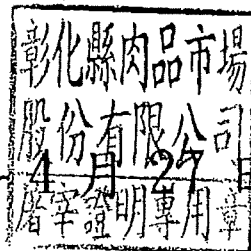 彰化縣肉品市場
股份有限公司
4月27日
屠宰證明專用章